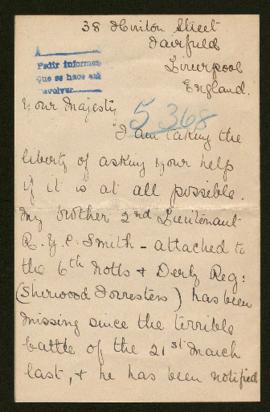 38 Hinton Street
Fairfield
Liverpool
England.
Pedir informes
que se hace
devolver
Your Majesty
5368
I am taking the
liberty of asking your help
if it is at all possible.
My brother 2nd Lieutenant
Smith - attached to
the 6th Notts & Derby Reg:
(Sherwood Forresters) has been
missing since the terrible
battle of the 21st March
last, & he has been notified